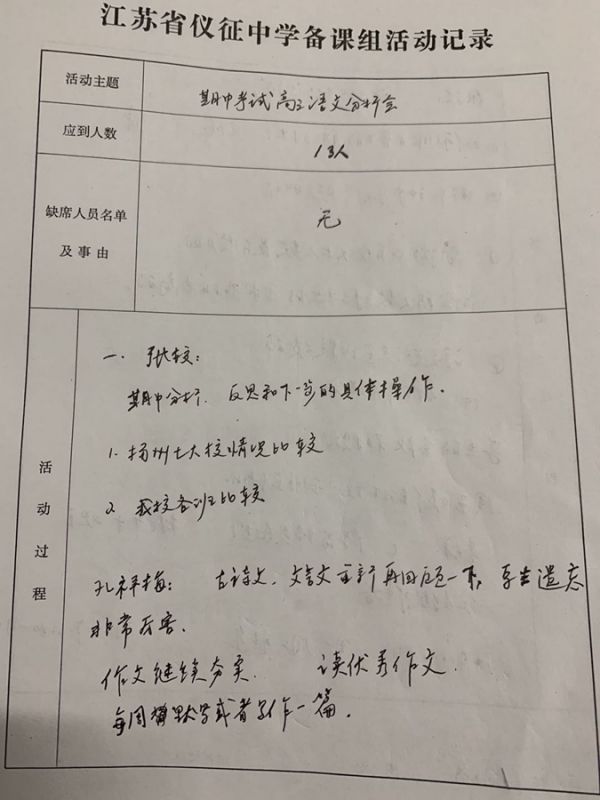 江苏省仪征中学备课组活动记录
活动主题
期中考试高三语文分析会
应到人数
13人
缺席人员名单
及事由
无
活动过程
一. 张校:
期中分析. 反思和下一步的具体操作.
1. 扬州七大校情况比较
2. 我校各班比较
孔祥梅: 古诗文、文言文重新再回忆一下, 学生遗忘
非常厉害.
作文继续夯实. 读优秀作文.
每周默写或者写作一篇.